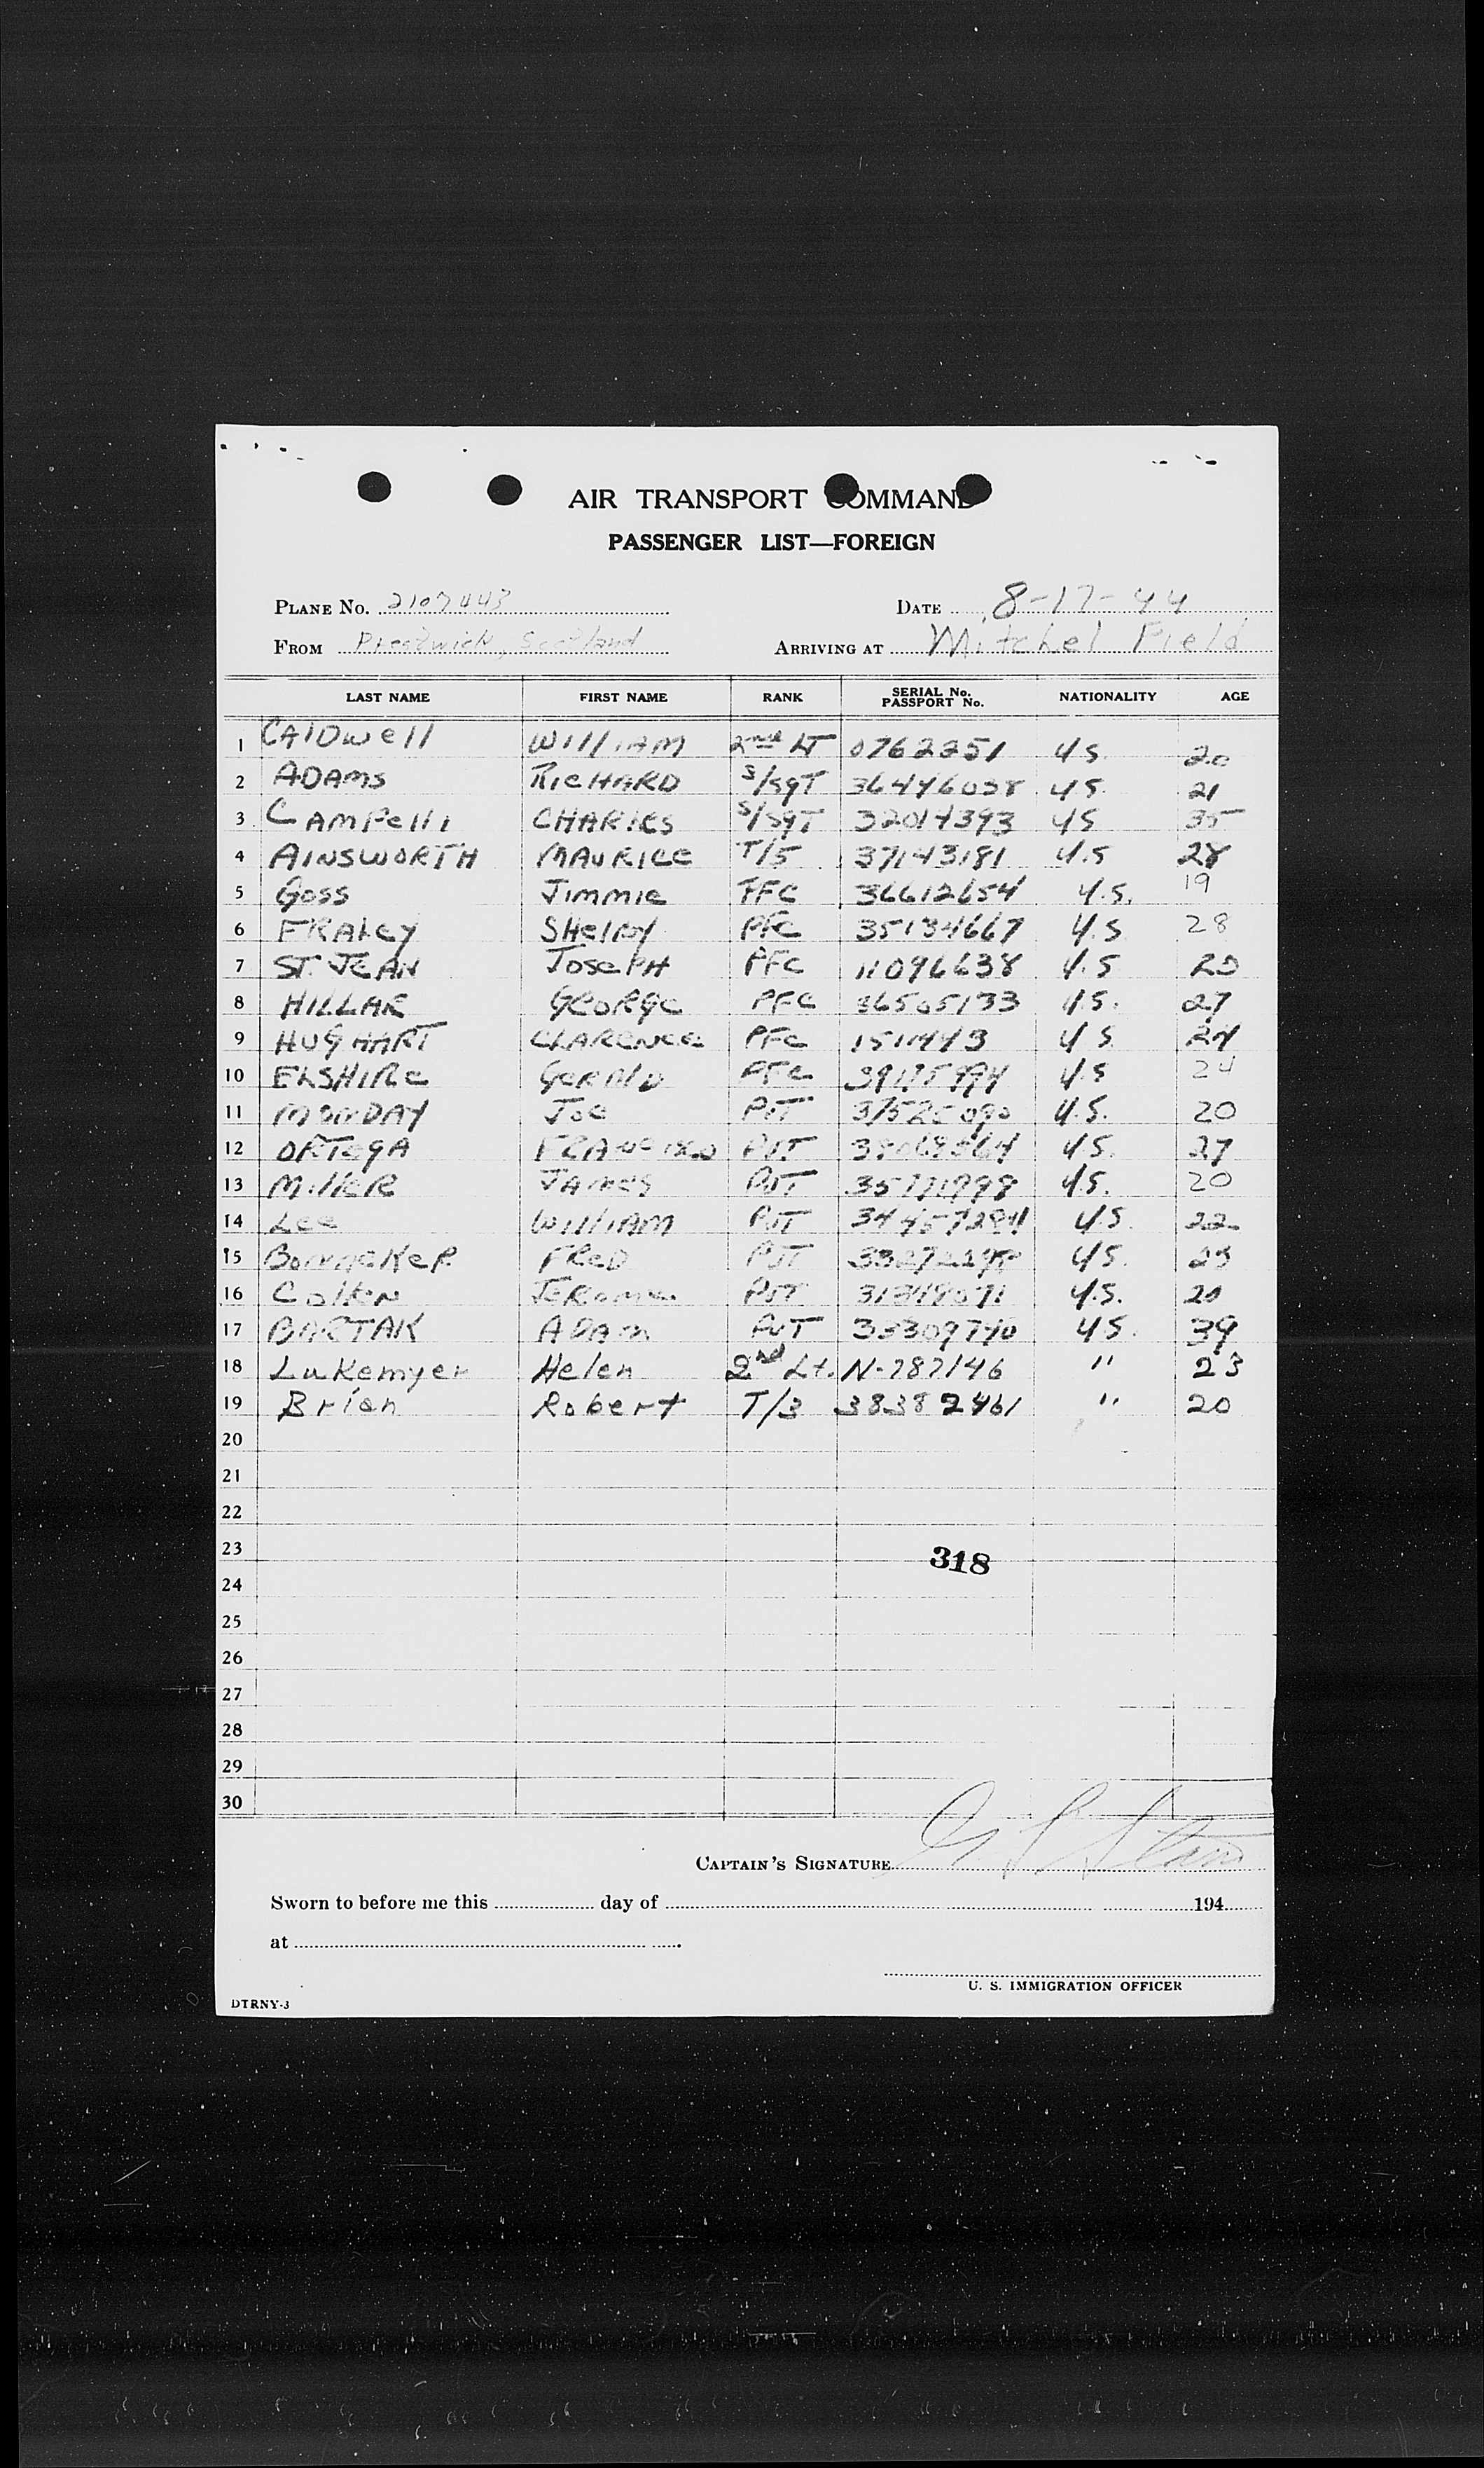 AIR TRANSPORT COMMAND
PASSENGER LIST—FOREIGN
PLANE NO. 2107443 DATE 8-17-44
FROM Prestwick, Scotland ARRIVING AT Mitchel Field
LAST NAME FIRST NAME RANK SERIAL No. PASSPORT No. NATIONALITY AGE
1 CAlDwell WilliAM 2nd LT 0762251 U.S. 20
2 ADAMS RICHARD S/SgT 36446038 U.S. 21
3 CAMPelli CHARlES S/SgT 32014393 US 35
4 AINSWORTH MAURICE T/5 37143181 U.S 28
5 Goss Jimmie PFC 36612654 U.S. 19
6 FRALEY SHelby PFC 35134667 U.S 28
7 ST. JEAN JosePH PFC 11096638 U.S
8 HILLAR GEORGE PFC 36505133 U.S. 27
9 HUGHART CLARENCE PFC U.S 24
10 ELSHIRE GERAlD PFC U.S 24
11 MONDAY Joe PVT U.S. 20
12 ORTEGA PVT U.S. 27
13 MillER JAMES PVT U.S. 20
14 Lee WilliAM PVT U.S. 22
15 FReD PVT U.S.
16 JEROME PVT U.S. 20
17 BARTAK ADAM PVT U.S. 39
18 Lukemyer Helen 2nd Lt. N-787146 " 23
19 Brian Robert T/3 38382461 " 20
20
21
22
23
318
24
25
26
27
28
29
30
CAPTAIN'S SIGNATURE
Sworn to before me this day of 194
at
U. S. IMMIGRATION OFFICER
DTRNY-3